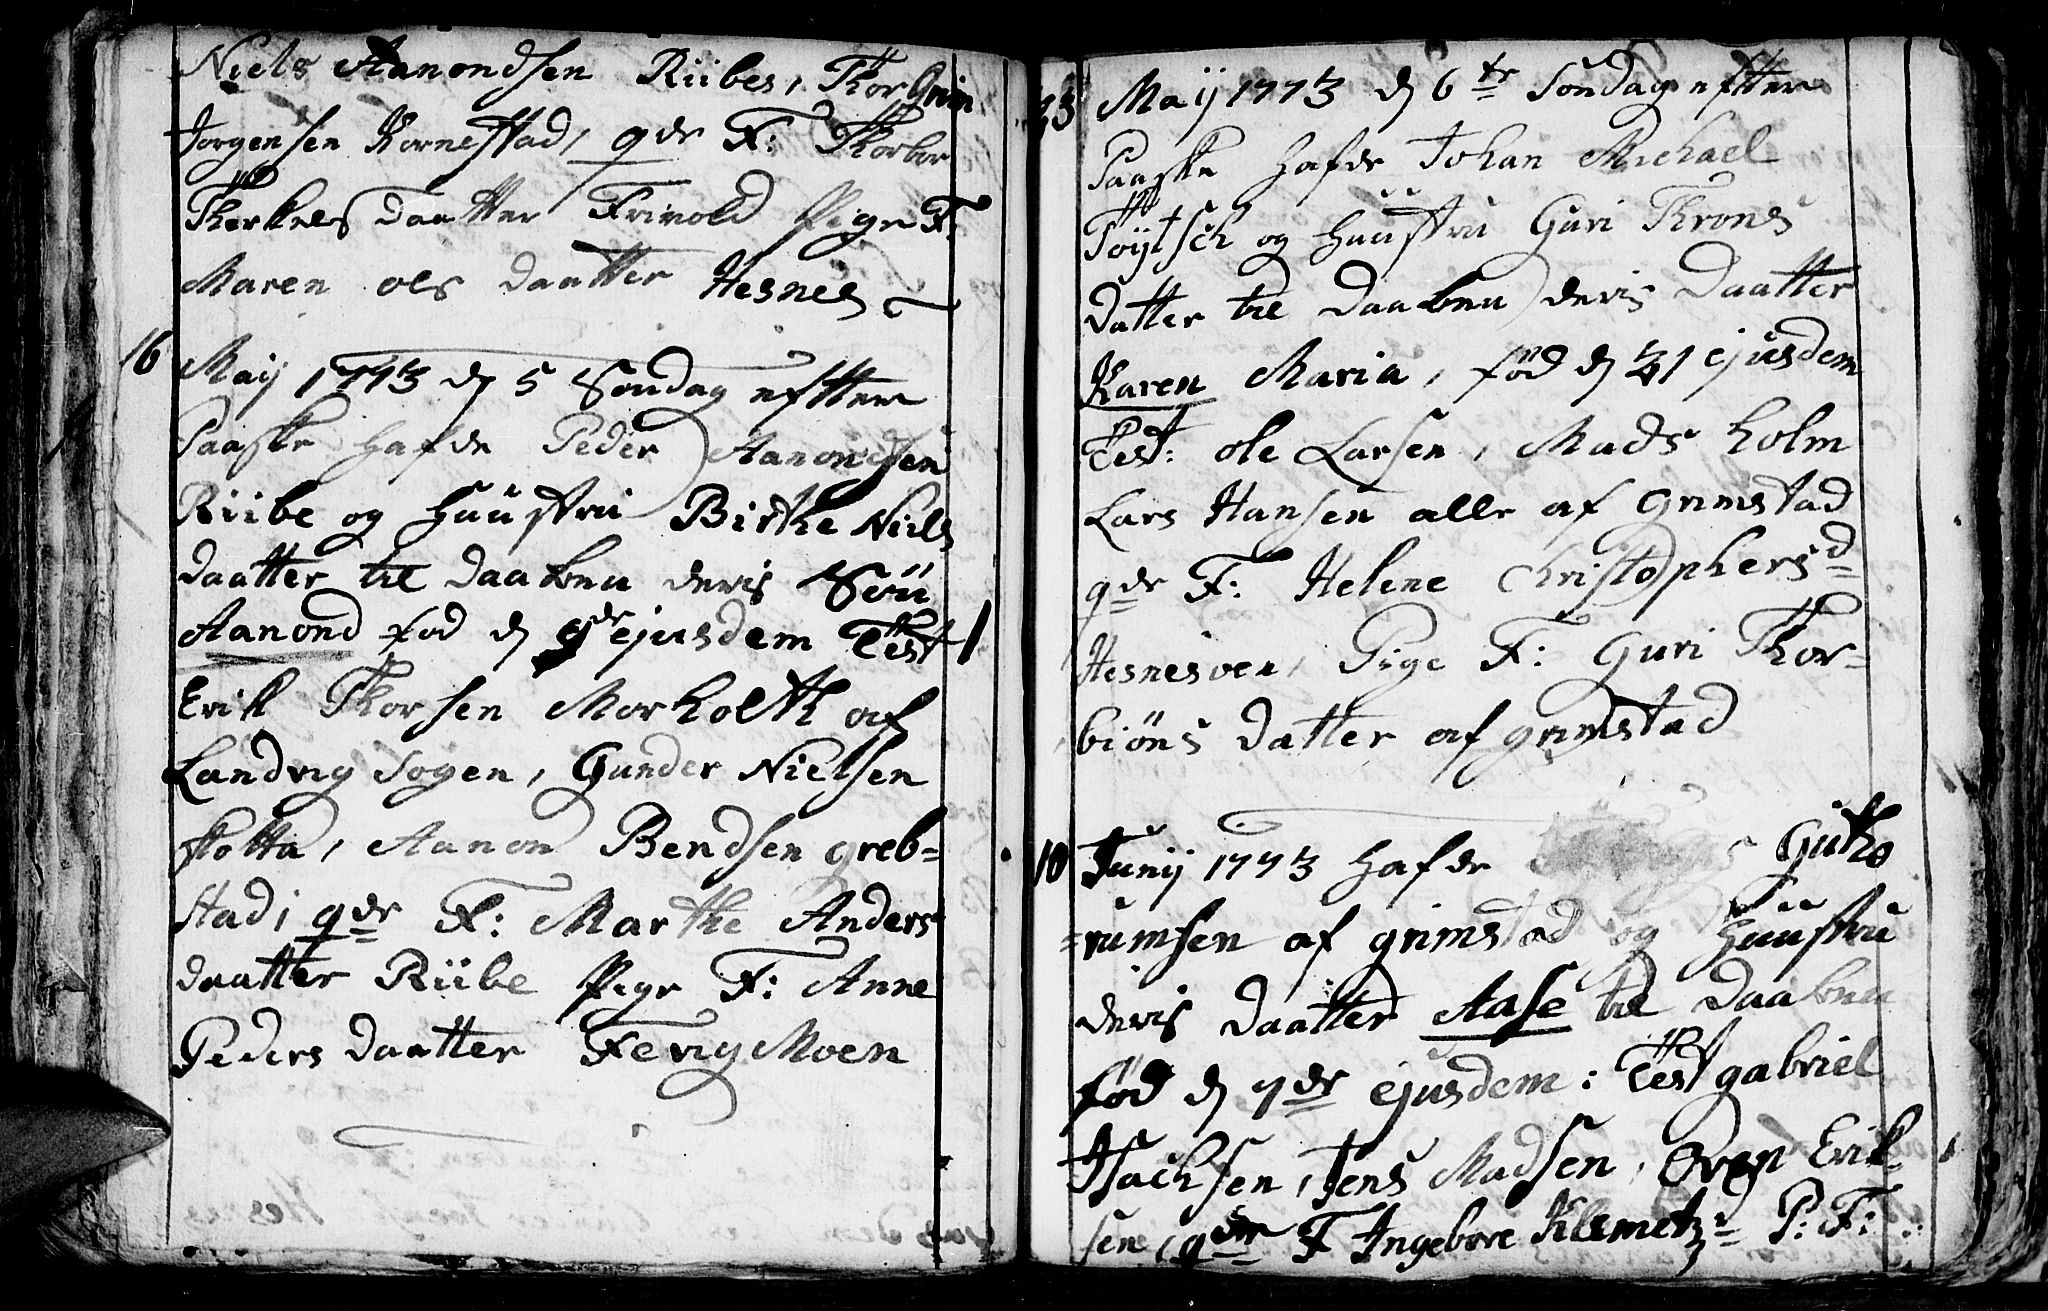 Niels Aanondsen Riibes, Thor Grim
Jorgensen Kornestad, qdr F: Thorbor
Therkels daatter Frivold Pige F.
Maren oels daatter Hesnes
16 Maij 1773 d 5 Søndag eftter
Paaske hafde Peder Aanondsen
Riibe og Huustru Birthe Niels
daatter til daaben deris Søn
Aanond fød d 9de ejusdem Test
Erik Thorsen Morholth af
Landvig Sogen, Gunder Nielsen
Stotta, Aanon Bendsen greb=
stad, qdr F: Marthe Anders
daatter Riibe Pige F: Anne
Peders daatter Fevig Moen
23 Maij 1773 d 6te Søndag eftter
Paaske hafde Johan Michael
Töÿtsch og Huustru Guri Throns
datter til Daaben deris Daatter
Karen Maria, fød d 21 ejusdem
Test: ole Larsen, Mads Holm
Lars Hansen alle af Grimstad
qdr F: Helene Christophersd
Hesnesoen, Pige F: Guri Thor=
biøns datter af grimstad
10 Junij 1773 hafde Gutho
=rumsen af grimstad og Huustru
deris Daatter Aase til Daaben
fød d 7de ejusdem: Test gabriel
Isachsen, Jens Madsen, Oven Erik
sen, qdr F Ingebore Klemetz= P: F: